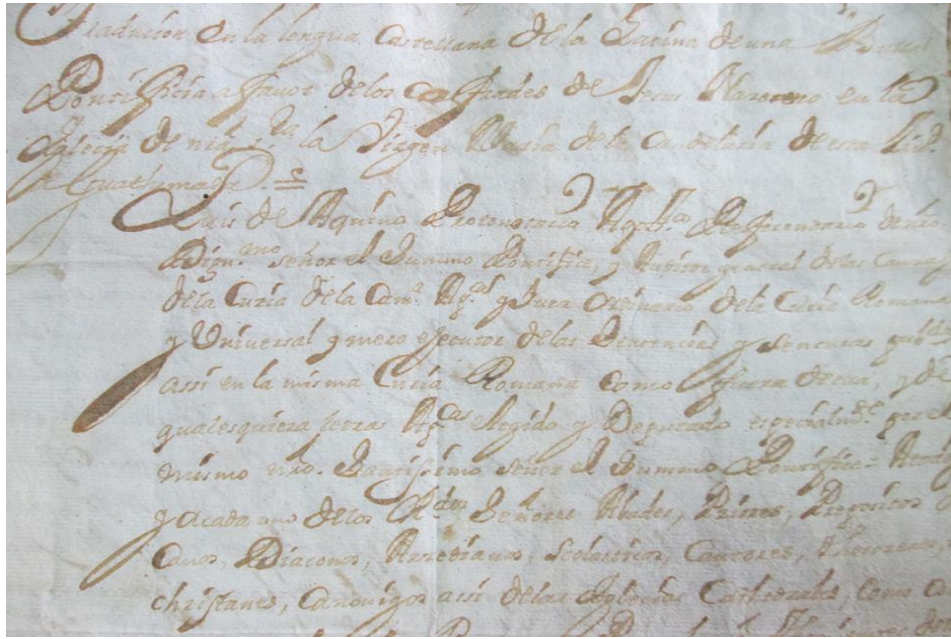 Traducion en la lengua Castellana de la Latina de una Bulla
Pontifficia a ffavor de los Coffrades de Jesus Nazareno en la
Iglecia de nrâ. srâ. la Virgen Maria de la Candelaria de esta Ciud.
de Guathemala
Luis de Aquino Protonotario Appco. Refferendario de nro
Dign.mo señor el Summo Pontifice, y Auditor general de las Causas
de la Curia de la Cam.a App.ca y Juez Ordinario de la Curia Romana
y Universal y mero ejecutor de las Sentencias y senсuras
assi en la misma Curia Romana como ffuera de ella, y de
qualesquiera letras App.cas elegido y Deputado especialm.te por el
mismo nro. Santissimo señor el Summo Pontifice
y a cada uno de los R.dos Señores Abades, Priores, Prepositos
Canos, Diaconos, Arzedianos, Scolasticos, Cantores, Thesoreros,
christanes, Canonigos assi de las Iglecias Cathedrales, como